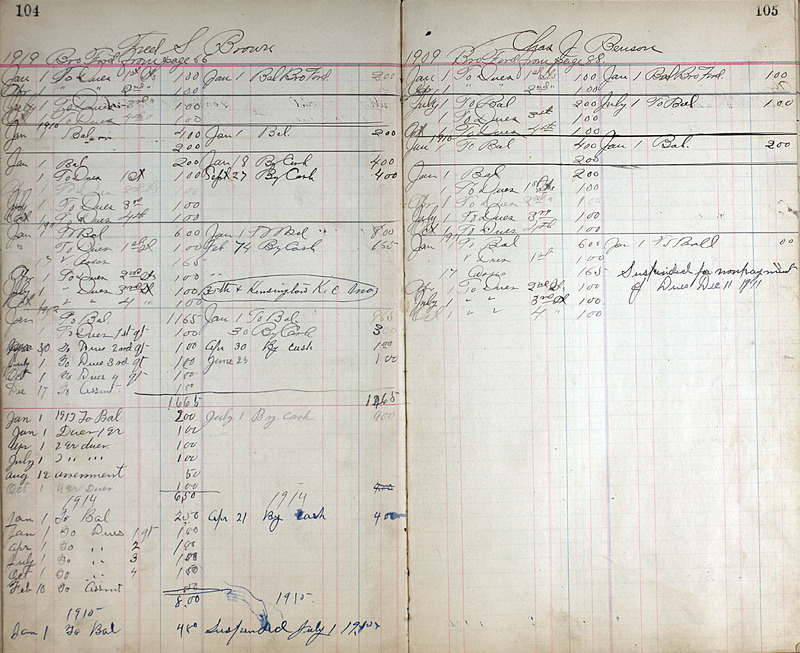 104
Fred S. Brown
1919 Bro Ford from page 56
Jan 1 To Dues 1st qt 100 Jan 1 Bal Bro Ford 200
Apr 1 " " 2nd " 100
July 1 To Dues 3rd " 100
Oct 1 To Dues 4th " 100
1910
Jan 1 Bal 400 Jan 1 Bal. 200
200
Jan 1 Bal 200 Jan 18 By Cash 400
To Dues 1st 100 Sept 27 By Cash 400
July 1 To Dues 3rd 100
Oct 1 To Dues 4th 100
Jan 1 To Bal 600 Jan 1 To Bal " 800
" To Dues 1st qt 100 Feb 74 By Cash 165
" " 165
Apr 1 To Dues 2nd qt 100
July 1 " Dues 3rd qt 100 & Kensington K.C.
Oct 1 " " 4 " 100
1912
Jan 1 To Bal 1165 Jan 1 To Bal. 965
To Dues 1st qt 100 30 By Cash 3
30 To Dues 2nd qt 100 Apr 30 By Cash 100
July 1 To Dues 3rd qt 100 June 23 100
Oct 1 To Dues 4 qt 100
Dec 17 To Assmt 100
1665 1465
Jan 1 1913 To Bal 200 July 1 By Cash 400
Jan 1 Dues 1 qr 100
Apr 1 2 qr dues 100
July 1 3 " " 100
Aug 12 assessment 50
Oct 1 4 qr Dues 100 400
650
1914 1914
Jan 1 To Bal 250 Apr 21 By Cash 400
Jan 1 To Dues 1 qt 100
Apr 1 To " 2 100
July 1 To " 3 100
Oct 1 To " 4 100
Feb 10 To Assmt
8.00 1915
1915
Jan 1 To Bal 400 Suspended July 1 1915
105
Chas J. Benson
1909 Bro Ford from page 58
Jan 1 To Dues 1st qt 100 Jan 1 Bal Bro Ford 100
Apr 1 " " 2nd " 100
July 1 To Bal 200 July 1 To Bal 100
1 To Dues 3rd 100
Oct 1 To Dues 4th 100
1910
Jan 1 To Bal 400 Jan 1 Bal. 200
200
Jan 1 Bal 200
1 To Dues 1st qt 100
Apr 1 To Dues 2nd " 100
July 1 To Dues 3rd 100
Oct 1 To Dues 4th 100
Jan 1 To Bal 600 Jan 1 To Ball 00
" Dues 1st 100
17 165 Suspended for nonpayment
Apr 1 To Dues 2nd qt 100 of Dues Dec 11 1911
July 1 " " 3rd qt 100
Oct 1 " " 4 " 100